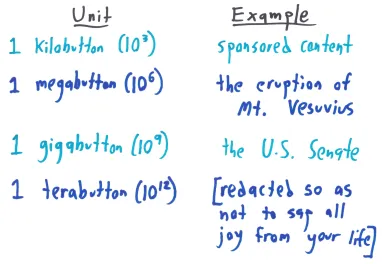 Unit Example
1 kilobutton (10³) sponsored content
1 megabutton (10⁶) the eruption of
Mt. Vesuvius
1 gigabutton (10⁹) the U.S. Senate
1 terabutton (10¹²) [redacted so as
not to sap all
joy from your life]